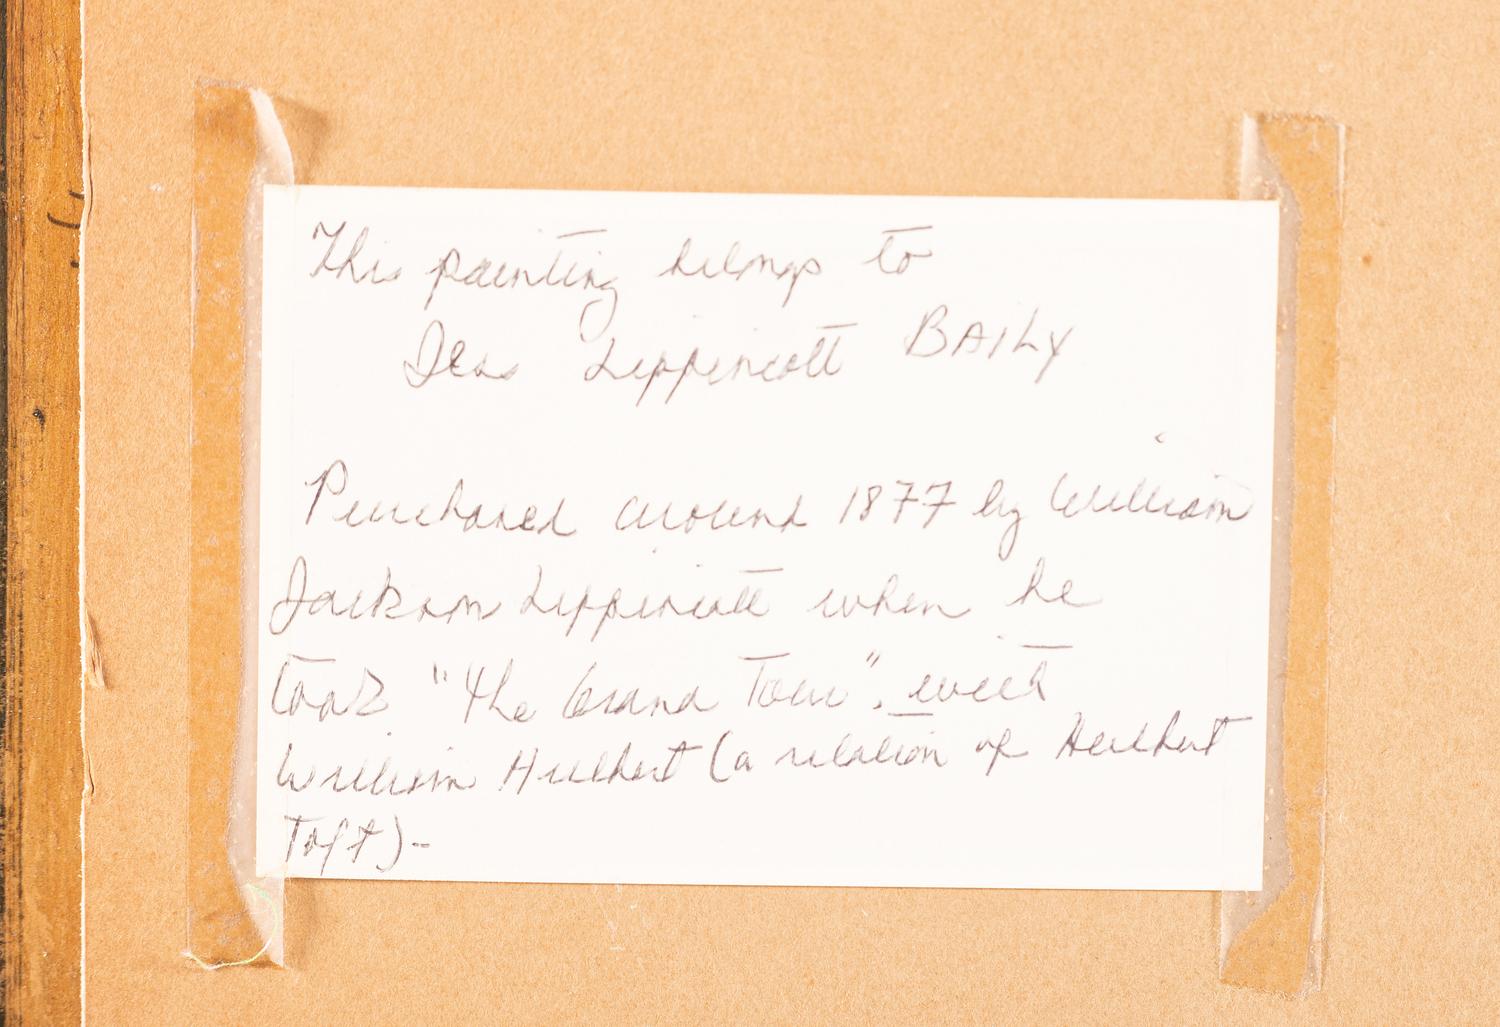 This painting belongs to
Lippincott BAILY
Purchased around 1877 by William
Jackson Lippincott when he
took "the Grand Tour". with
William Hulbert (a relation of Hulbert
Toft)-